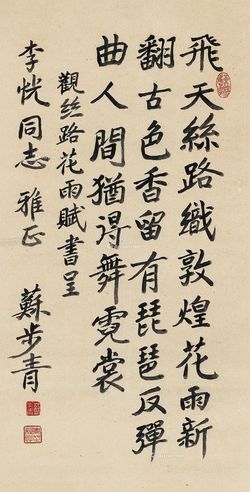 飛天絲路織敦煌花雨新
翻古色香留有琵琶反彈
曲人間猶得舞霓裳
觀丝路花雨賦書呈
李恍同志 雅正
蘇步青